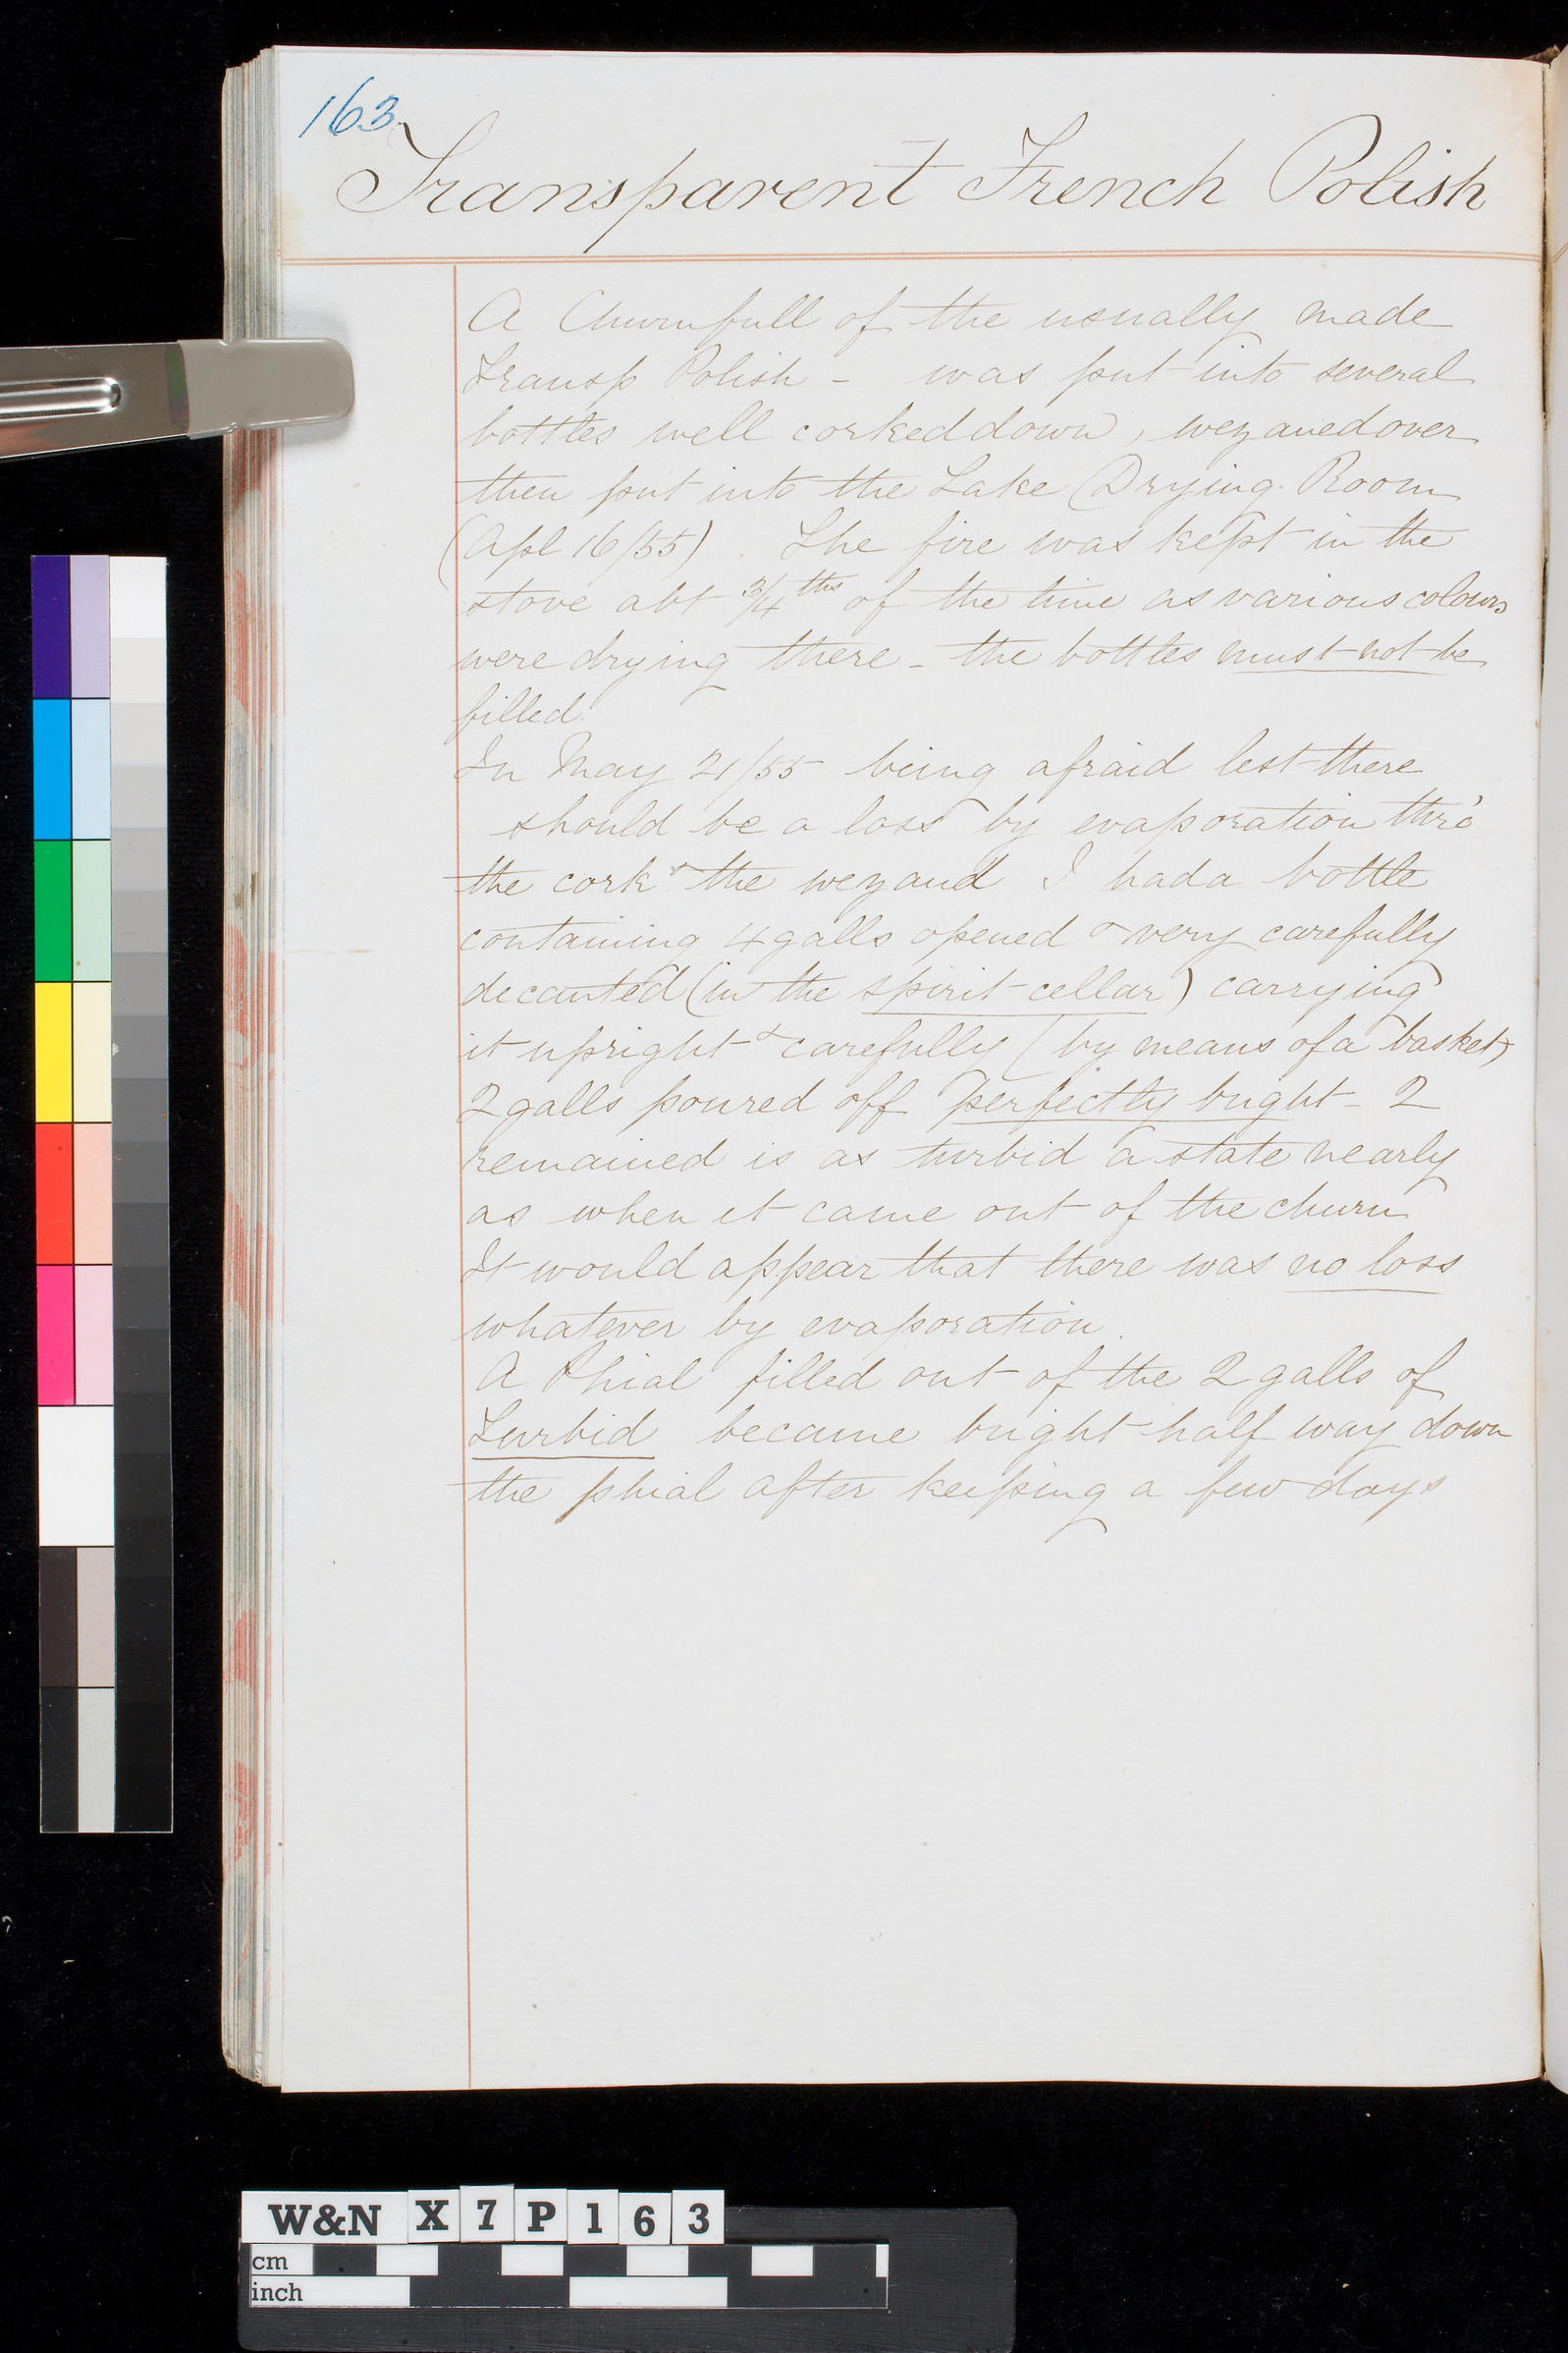 163
Transparent French Polish
A Churnfull of the usually made
Transp Polish - was put into several
bottles well corked down, wezaned over
then put into the Lake Drying Room
(Apl 16/55). The fire was kept in the
stove abt 3/4ths of the time as various colours
were drying there - the bottles must not be
filled.
In May 21/55 being afraid lest there
should be a loss by evaporation thro'
the cork & the wezand I had a bottle
containing 4 galls opened & very carefully
decanted (in the spirit cellar) carrying
it upright & carefully (by means of a basket)
2 galls poured off perfectly bright - 2
remained is as turbid a state nearly
as when it came out of the churn
It would appear that there was no loss
whatever by evaporation.
A Phial filled out of the 2 galls of
Turbid became bright half way down
the phial after keeping a few days
W&N X 7 P 1 6 3
cm
inch